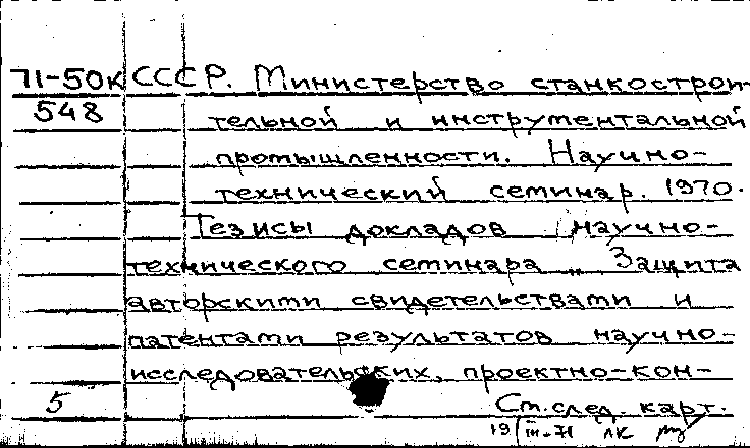 71-50к СССР. Министерство станкострои-
548 тельной и инструментальной
промышленности. Научно-
технический семинар. 1970.
Тезисы докладов научно-
технического семинара „Защита
авторскими свидетельствами и
патентами результатов научно-
исследовательских, проектно-кон-
5 Ст. след. карт.
19/III-71 ЛК